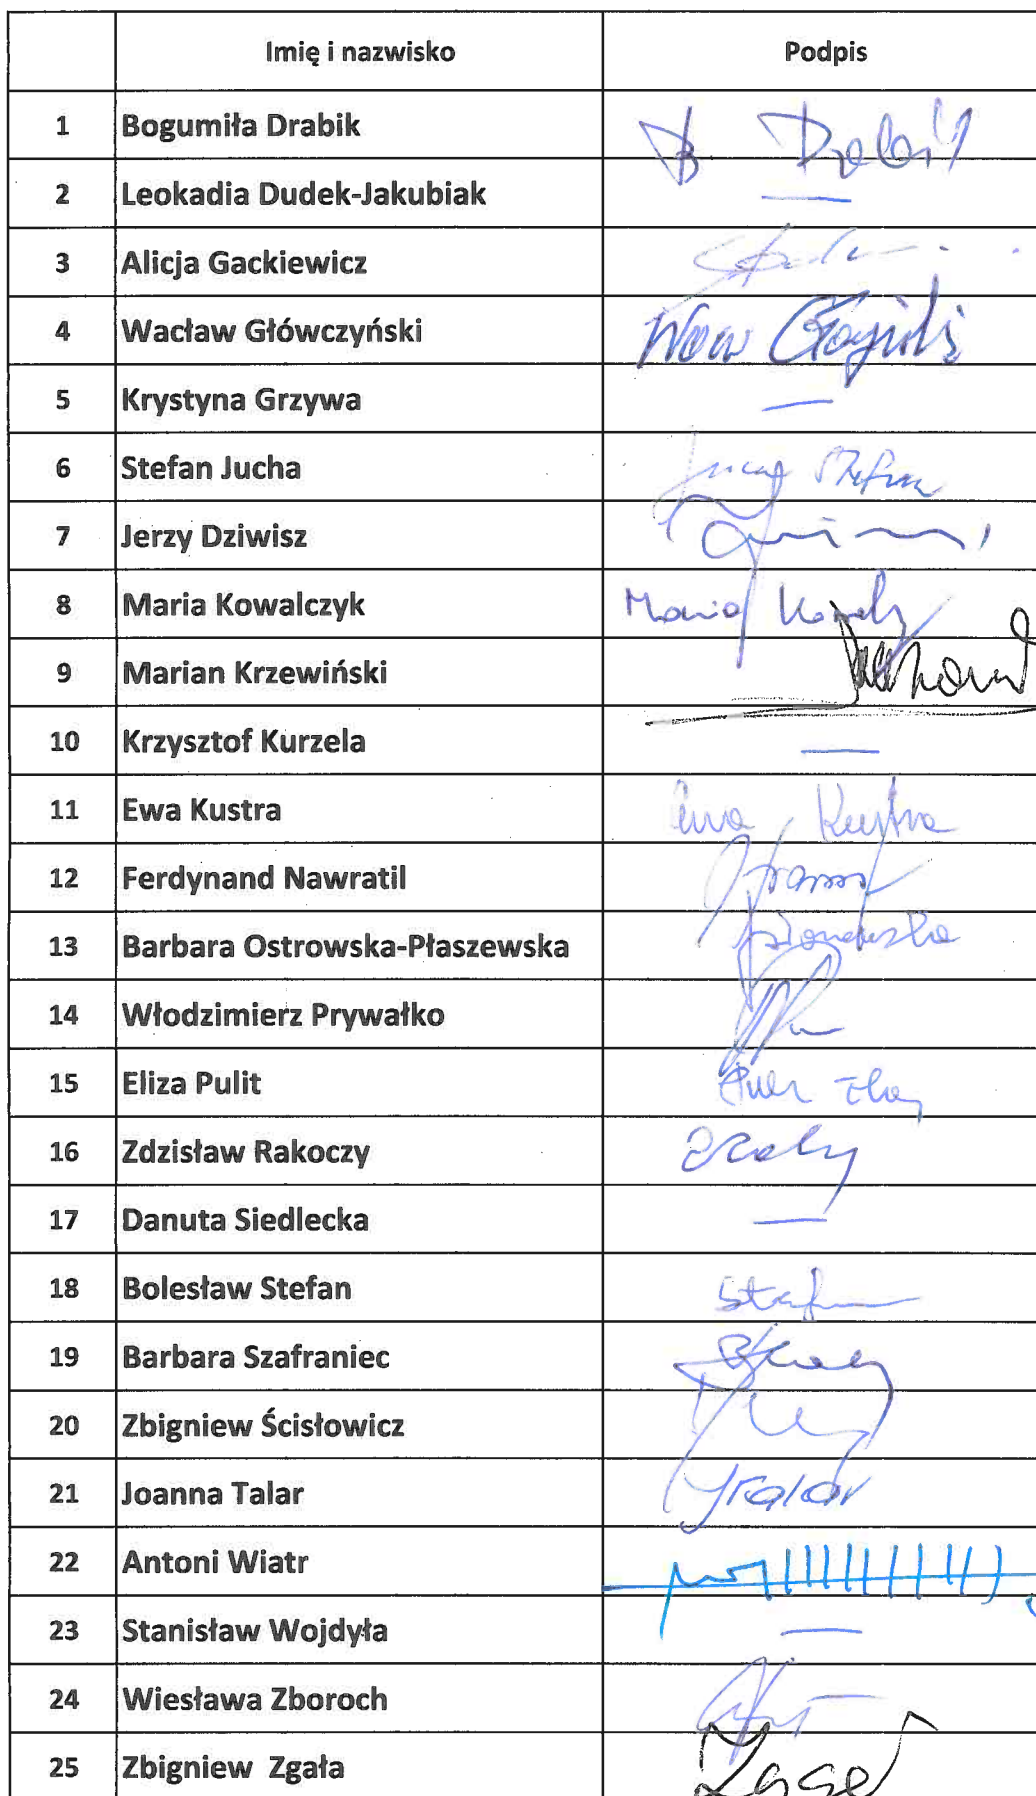 Imię i nazwisko Podpis
1 Bogumiła Drabik B Drabik
2 Leokadia Dudek-Jakubiak —
3 Alicja Gackiewicz
4 Wacław Główczyński
5 Krystyna Grzywa —
6 Stefan Jucha Jucha Stefan
7 Jerzy Dziwisz
8 Maria Kowalczyk Maria
9 Marian Krzewiński
10 Krzysztof Kurzela —
11 Ewa Kustra Ewa Kustra
12 Ferdynand Nawratil
13 Barbara Ostrowska-Płaszewska
14 Włodzimierz Prywałko
15 Eliza Pulit
16 Zdzisław Rakoczy
17 Danuta Siedlecka —
18 Bolesław Stefan Stefan
19 Barbara Szafraniec
20 Zbigniew Ścisłowicz
21 Joanna Talar JTalar
22 Antoni Wiatr
23 Stanisław Wojdyła —
24 Wiesława Zboroch
25 Zbigniew Zgała